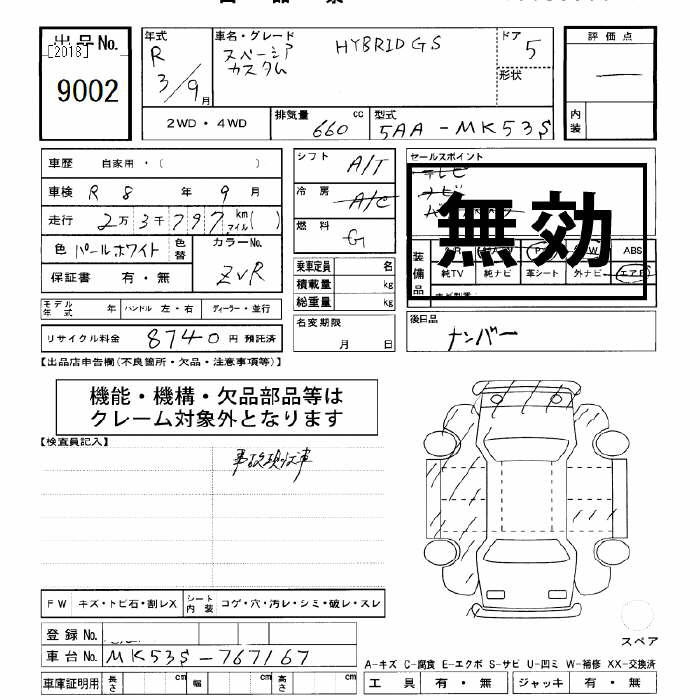 出品No. [2018] 9002
年式 R 3/9月
車名・グレード スペーシア カスタム HYBRID GS
ドア 5
形状
評価点 —
内装
2WD・4WD
排気量 660 cc
型式 5AA-MK53S
車歴 自家用・( )
車検 R 8 年 9 月
走行 2万3千797 km マイル( )
色 パールホワイト 色替 カラーNo. ZVR
保証書 有・無
シフト A/T
冷房 A/C
燃料 G
乗車定員 名
積載量 kg
総重量 kg
セールスポイント
テレビ
ナビ
無効
装備品 ABS
純TV 純ナビ 革シート 外ナビ エアB
モデル年式 年 ハンドル 左・右 ディーラー・並行
リサイクル料金 8740 円 預託済
名変期限 月 日
後日品 ナンバー
【出品店申告欄(不良箇所・欠品・注意事項等)】
機能・機構・欠品部品等は
クレーム対象外となります
【検査員記入】
事故現状車
FW キズ・トビ石・割レX シート内装 コゲ・穴・汚レ・シミ・破レ・スレ
登録No.
車台No. MK53S-767167
車庫証明用 長さ cm 幅 cm 高さ cm
スペア
A-キズ C-腐食 E-エクボ S-サビ U-凹ミ W-補修 XX-交換済
工具 有・無 ジャッキ 有・無